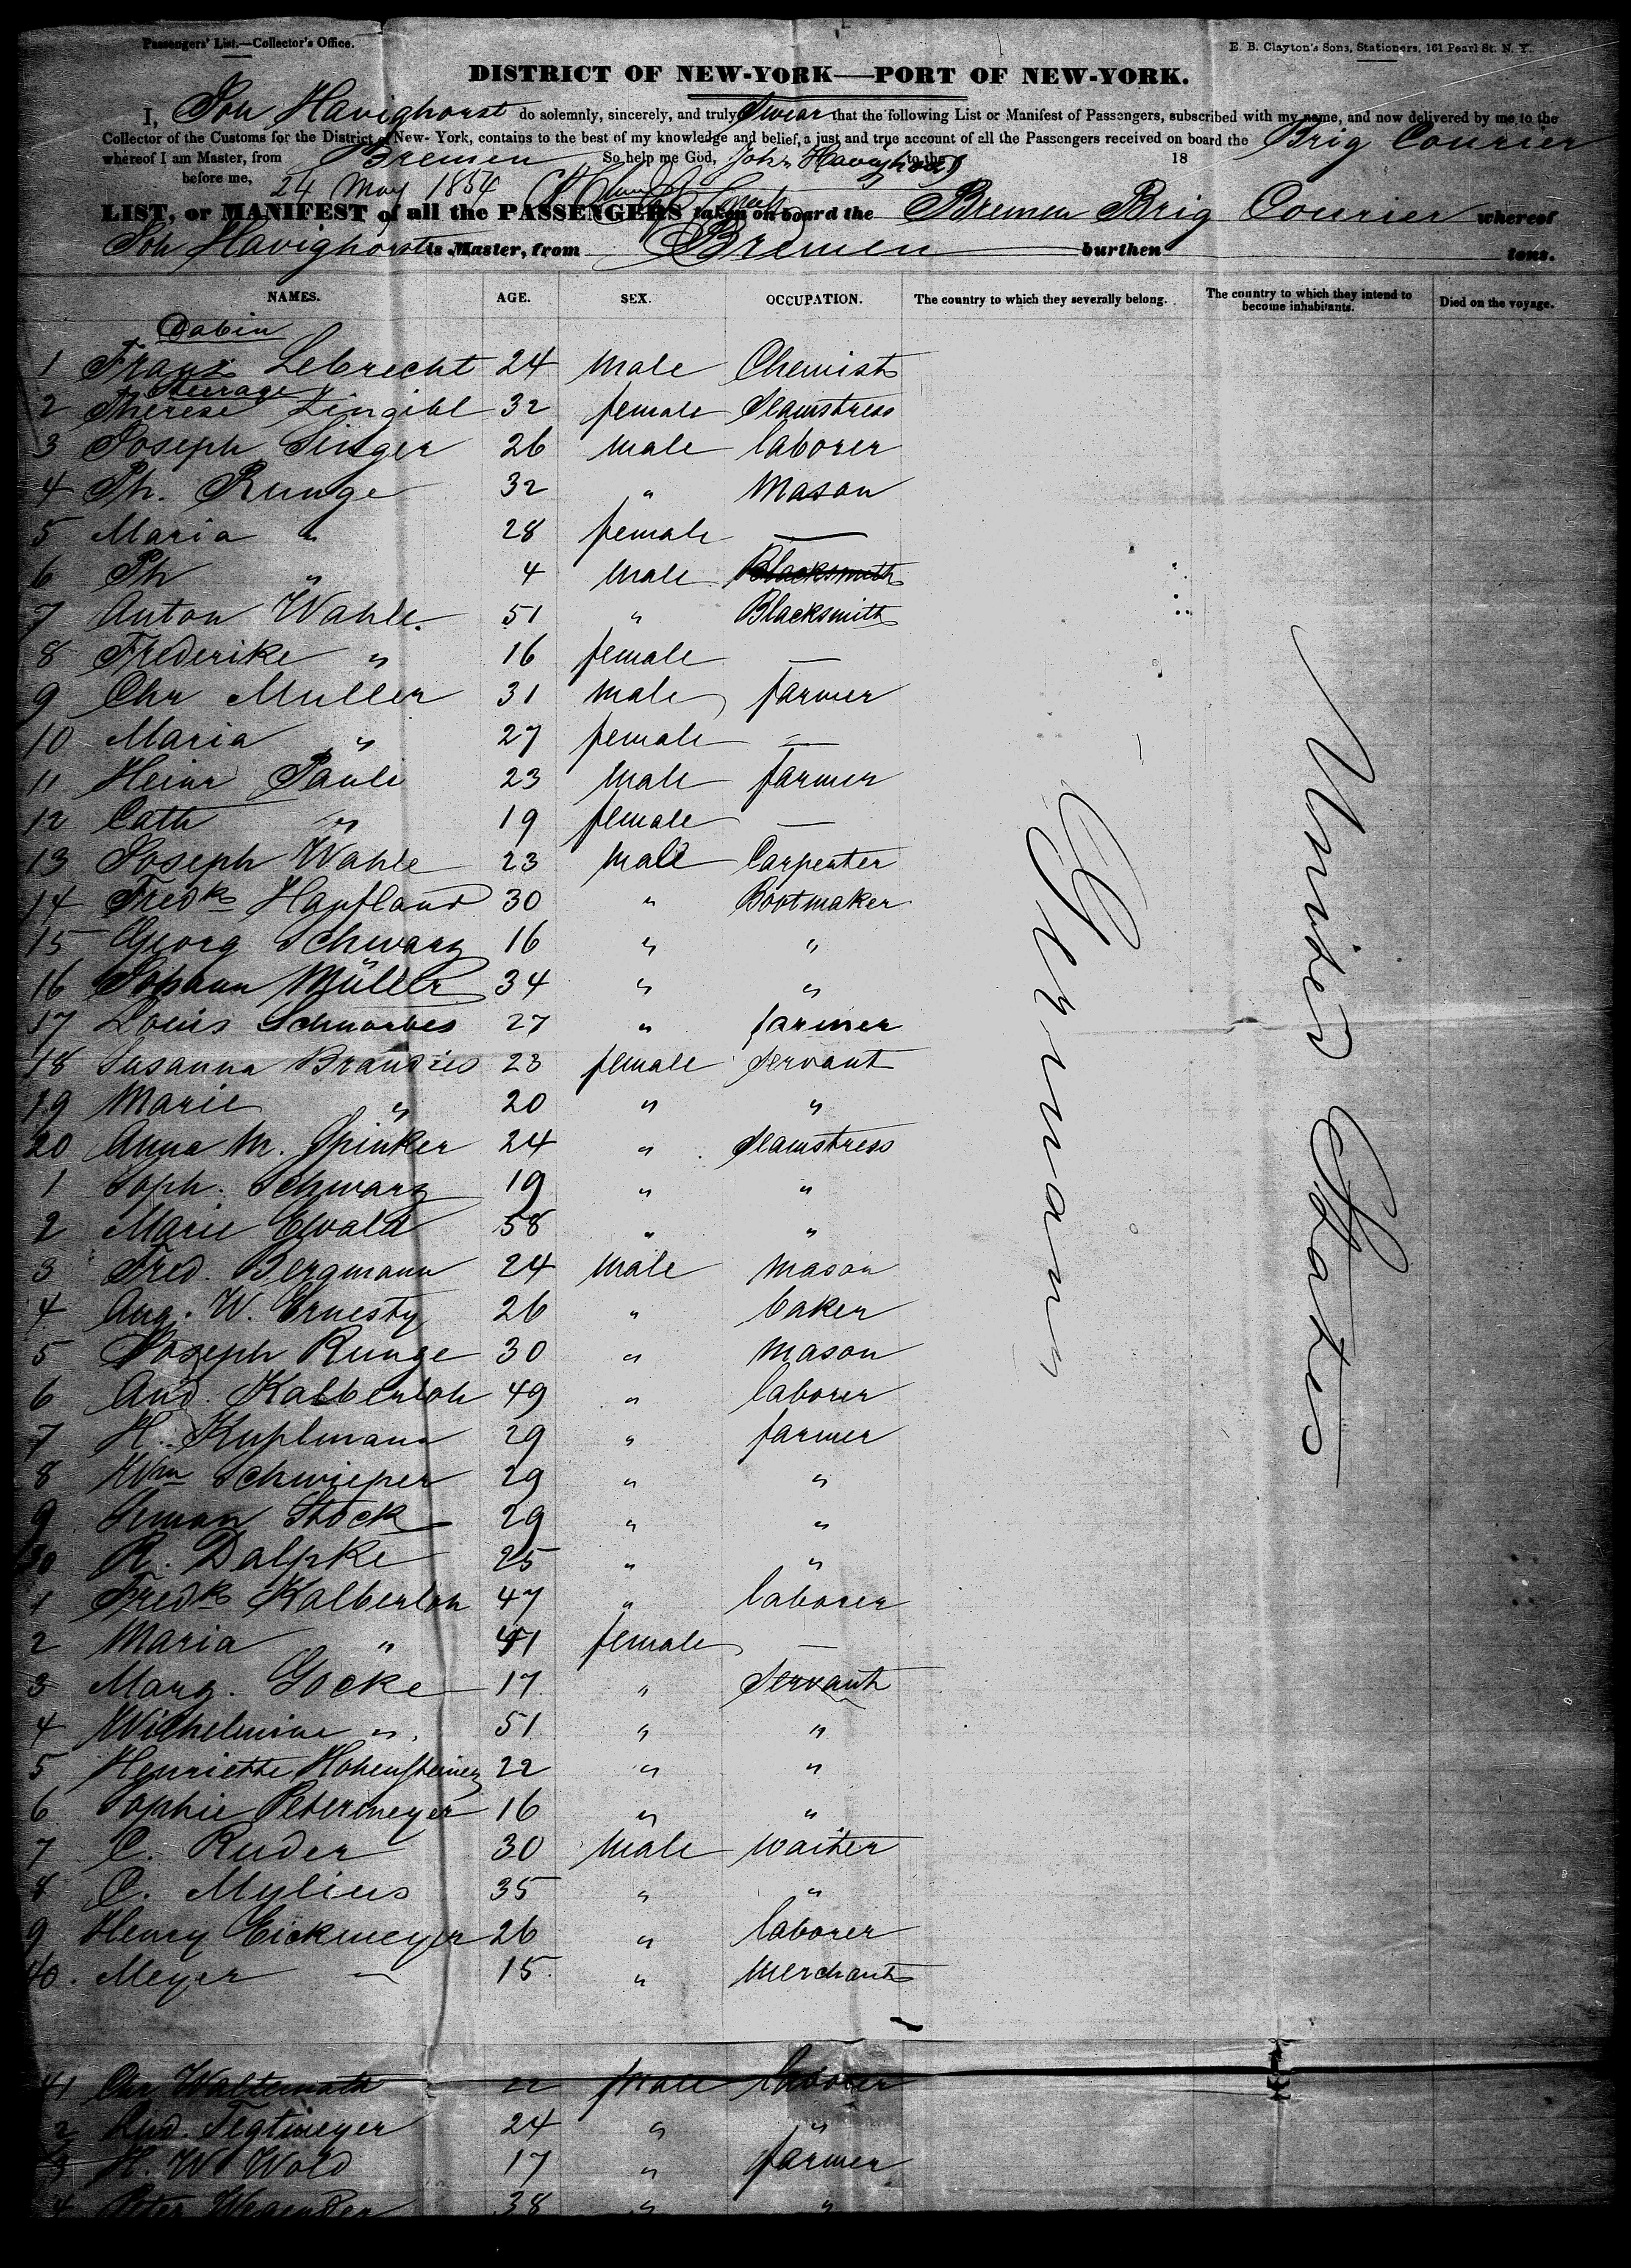 Passengers' List.—Collector's Office.
E. B. Clayton's Sons, Stationers, 161 Pearl St. N. Y.
DISTRICT OF NEW-YORK—PORT OF NEW-YORK.
I, Joh Havighorst do solemnly, sincerely, and truly Swear that the following List or Manifest of Passengers, subscribed with my name, and now delivered by me to the
Collector of the Customs for the District of New-York, contains to the best of my knowledge and belief, a just and true account of all the Passengers received on board the Brig Courier
whereof I am Master, from Bremen So help me God, Joh. Havighorst 18
before me, 24 May 1854
LIST, or MANIFEST of all the PASSENGERS taken on board the Bremen Brig Courier whereof
Joh Havighorst is Master, from Bremen burthen tons.
NAMES. AGE. SEX. OCCUPATION. The country to which they severally belong. The country to which they intend to become inhabitants. Died on the voyage.
Cabin
1 Franz Lebrecht 24 male Chemist
Steerage
2 Therese Zingibl 32 female Seamstress
3 Joseph Singer 26 male laborer
4 Ph. Runge 32 " Mason
5 Maria " 28 female —
6 Ph " 4 male Blacksmith
7 Anton Wahle. 51 " Blacksmith
8 Frederike " 16 female —
9 Chr Muller 31 male farmer
10 Maria " 27 female —
11 Heinr Pauli 23 male farmer
12 Cath " 19 female —
13 Joseph Wahle 23 male Carpenter
14 Fredk Hapfland 30 " Bootmaker
15 Georg Schwarz 16 " "
16 Johann Müller 34 " "
17 Louis 27 " farmer
18 Susanna Brandies 23 female Servant
19 Marie " 20 " "
20 Anna M. Spinker 24 " Seamstress
1 Soph. Schwarz 19 " "
2 Marie Ewald 58 " "
3 Fred. Bergmann 24 male Mason
4 Aug. W. Ernesty 26 " baker
5 Joseph Runge 30 " Mason
6 And. Kalberloh 49 " laborer
7 H. Kuplmann 29 " farmer
8 Wm Schwieper 29 " "
9 Stock 29 " "
30 R. Dalpke 25 " "
1 Fredk Kalberloh 47 " laborer
2 Maria " 41 female —
3 Marg. Gocke 17 " Servant
4 Wilhelmine " 51 " "
5 Henriette 22 " "
6 Sophie Petermeyer 16 " "
7 C. Ruder 30 male waiter
8 C. Mylius 35 " "
9 Henry Eickmeyer 26 " laborer
40. Meyer — 15 " Merchant
41 Chr Walternath 22 male laborer
2 Tegtmeyer 24 " "
3 H. W. Wold 17 " farmer
4 Peter 38 " "
Germany
United States